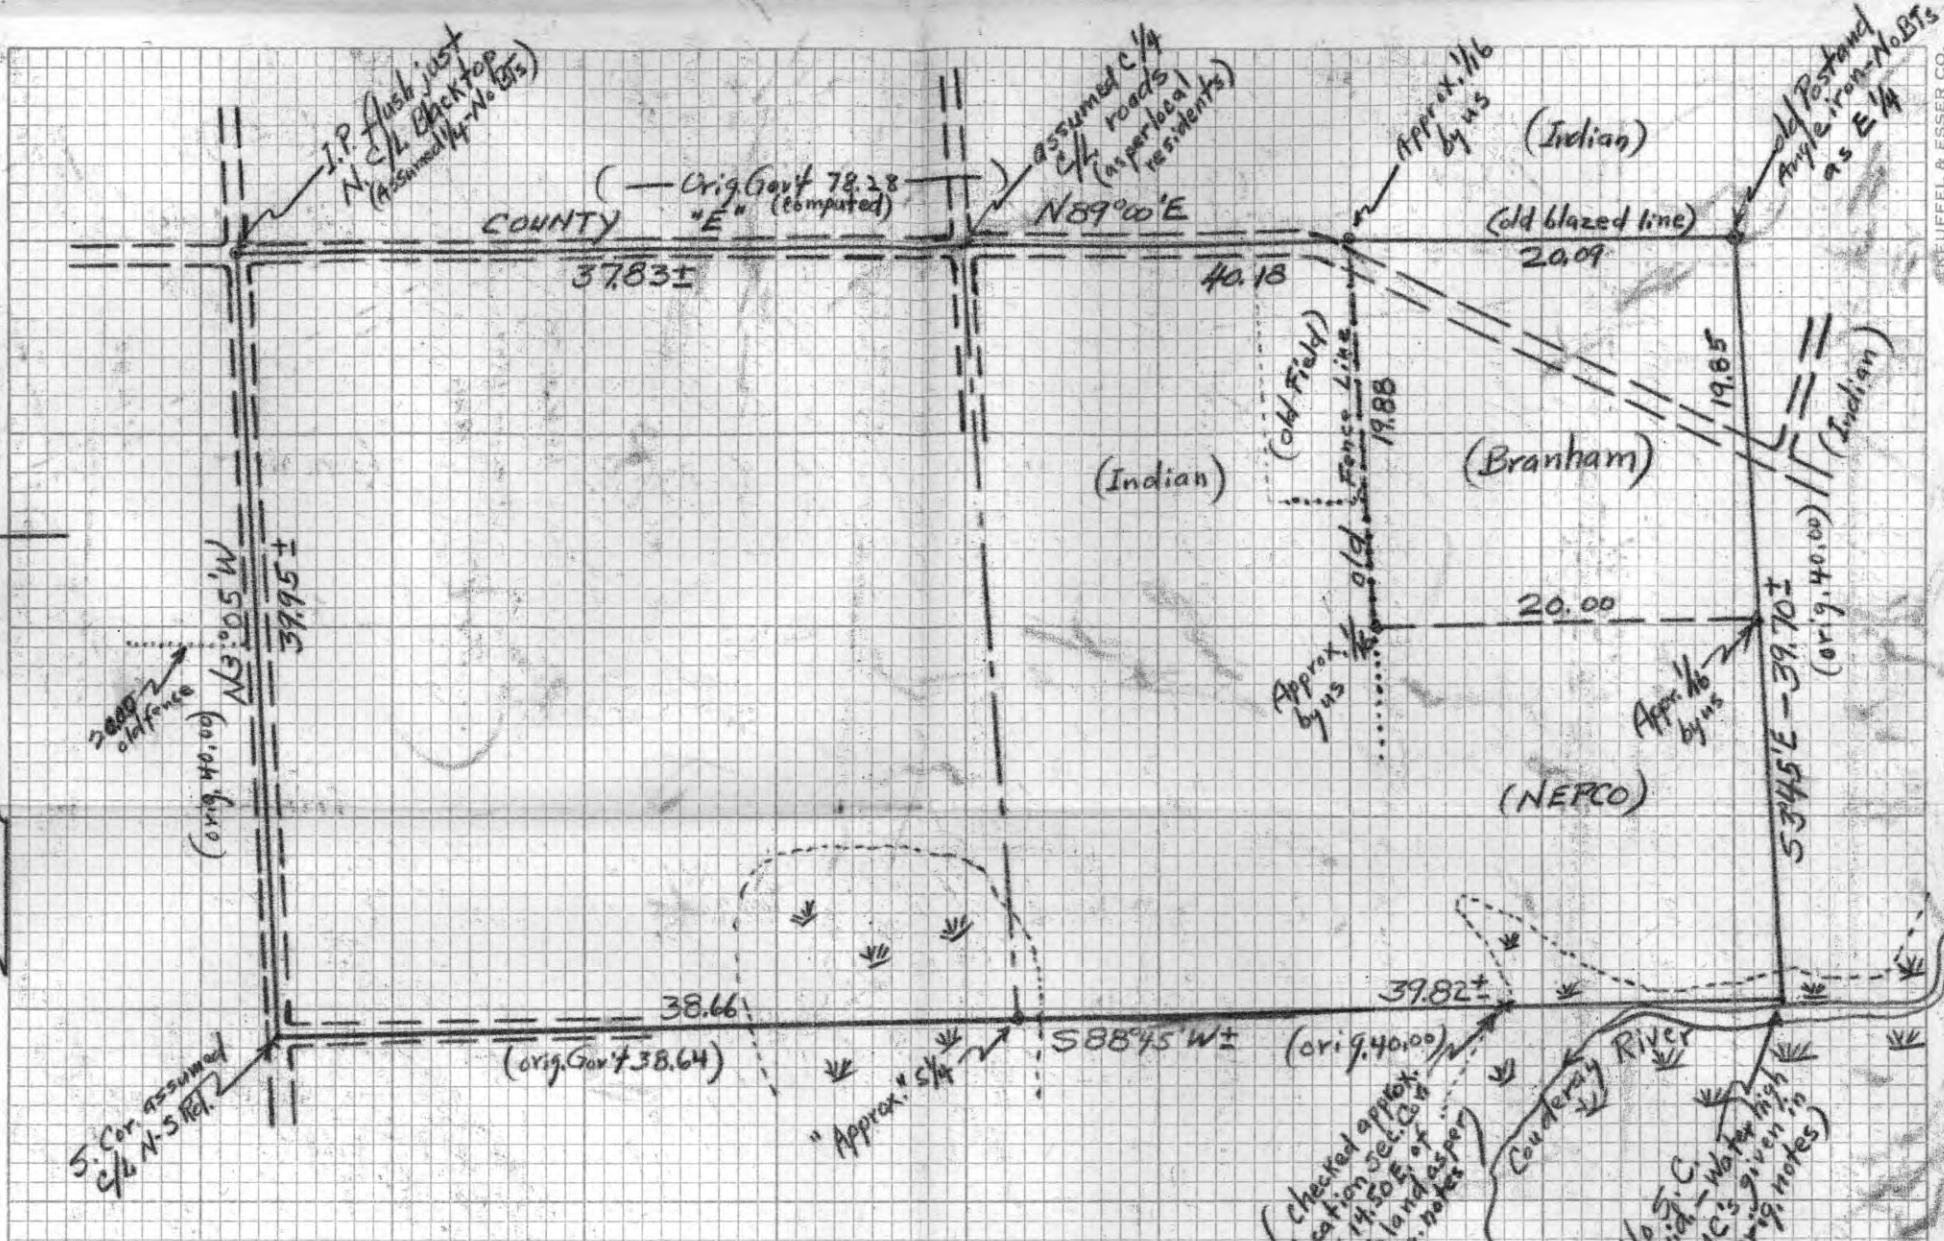 I.P. flush just
N. C/L Blacktop
(Assumed 1/4-No BTs)
assumed C 1/4
C/L roads
(as per local
residents)
Approx. 1/16
by us
(Indian)
old Post and
Angle iron-No BTs
as E 1/4
KEUFFEL & ESSER CO.
( — Orig. Gov't 78.28 — )
(computed)
COUNTY "E"
N89°00'E
(old blazed line)
37.83±
40.18
20.09
(old Field)
old Fence Line
19.88
19.85
(Indian)
(Indian)
(Branham)
N3°05'W
39.95±
(orig. 40.00)
old fence
20.00
Approx.
by us
Appr. 1/16
by us
S3°45'E - 39.70±
(orig. 40.00)
(NEPCO)
38.66
39.82±
(orig. Gov't 38.64)
S88°45'W±
(orig. 40.00)
S. Cor. assumed
C/L N-S Rd.
"Approx." S1/4
(Checked approx.
Sec. Cor
14.50 E. of
land as per
notes)
Couderay River
S. C.
Water high
C's given in
notes)